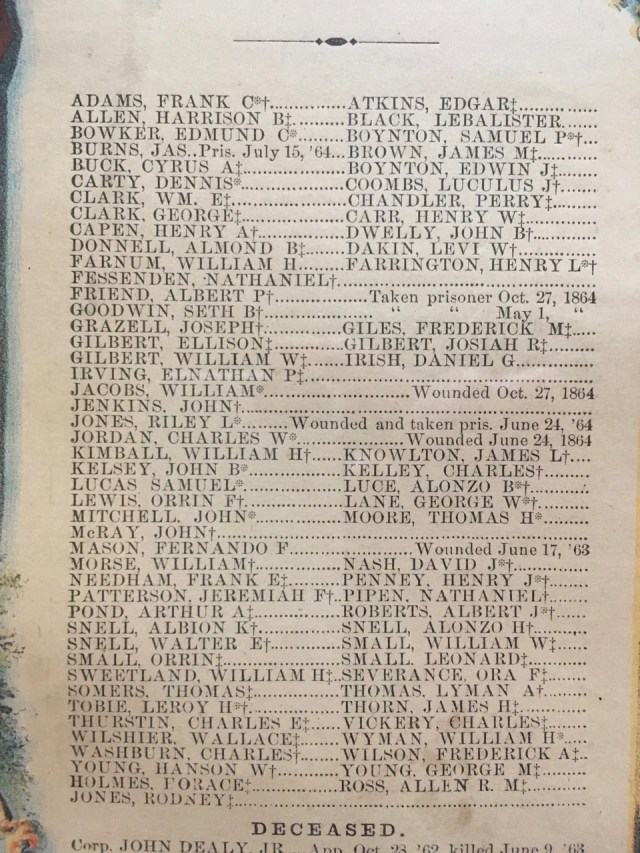 ADAMS, FRANK C*†...............ATKINS, EDGAR‡..............
ALLEN, HARRISON B‡...........BLACK, LEBALISTER......
BOWKER, EDMUND C*..........BOYNTON, SAMUEL P*†...
BURNS, JAS..Pris. July 15, '64...BROWN, JAMES M‡...........
BUCK, CYRUS A‡....................BOYNTON, EDWIN J‡......
CARTY, DENNIS*.....................COOMBS, LUCULUS J†......
CLARK, WM. E‡......................CHANDLER, PERRY‡........
CLARK, GEORGE‡...................CARR, HENRY W‡............
CAPEN, HENRY A†.................DWELLY, JOHN B†...........
DONNELL, ALMOND B‡........DAKIN, LEVI W†..............
FARNUM, WILLIAM H........FARRINGTON, HENRY L*†
FESSENDEN, NATHANIEL†.............................................
FRIEND, ALBERT P†...............Taken prisoner Oct. 27, 1864
GOODWIN, SETH B†................ “ “ May 1, “
GRAZELL, JOSEPH†................GILES, FREDERICK M‡.....
GILBERT, ELLISON‡...............GILBERT, JOSIAH R‡........
GILBERT, WILLIAM W‡.......IRISH, DANIEL G..............
IRVING, ELNATHAN P‡..................................................
JACOBS, WILLIAM*..........................Wounded Oct. 27, 1864
JENKINS, JOHN†............................................................
JONES, RILEY L*........Wounded and taken pris. June 24, '64
JORDAN, CHARLES W*....................Wounded June 24, 1864
KIMBALL, WILLIAM H†......KNOWLTON, JAMES L†....
KELSEY, JOHN B*..................KELLEY, CHARLES†.........
LUCAS SAMUEL*...................LUCE, ALONZO B*†..........
LEWIS, ORRIN F†...................LANE, GEORGE W*†.........
MITCHELL, JOHN*................MOORE, THOMAS H*.......
McRAY, JOHN†..............................................................
MASON, FERNANDO F.......................Wounded June 17, '63
MORSE, WILLIAM†.................NASH, DAVID J*†.............
NEEDHAM, FRANK E‡..........PENNEY, HENRY J*†.......
PATTERSON, JEREMIAH F†..PIPEN, NATHANIEL†.......
POND, ARTHUR A‡................ROBERTS, ALBERT J*†.....
SNELL, ALBION K†................SNELL, ALONZO H†.........
SNELL, WALTER E†..............SMALL, WILLIAM W‡......
SMALL, ORRIN‡.....................SMALL, LEONARD‡..........
SWEETLAND, WILLIAM H‡..SEVERANCE, ORA F‡........
SOMERS, THOMAS‡...............THOMAS, LYMAN A†........
TOBIE, LEROY H*†................THORN, JAMES H‡...........
THURSTIN, CHARLES E‡......VICKERY, CHARLES‡.......
WILSHIER, WALLACE‡........WYMAN, WILLIAM H*.....
WASHBURN, CHARLES†.......WILSON, FREDERICK A‡..
YOUNG, HANSON W†............YOUNG, GEORGE M‡........
HOLMES, HORACE‡..............ROSS, ALLEN R. M‡..........
JONES, RODNEY‡...........................................................
DECEASED.
Corp. JOHN DEALY, JR....App. Oct. 28, '62, killed June 9, '63